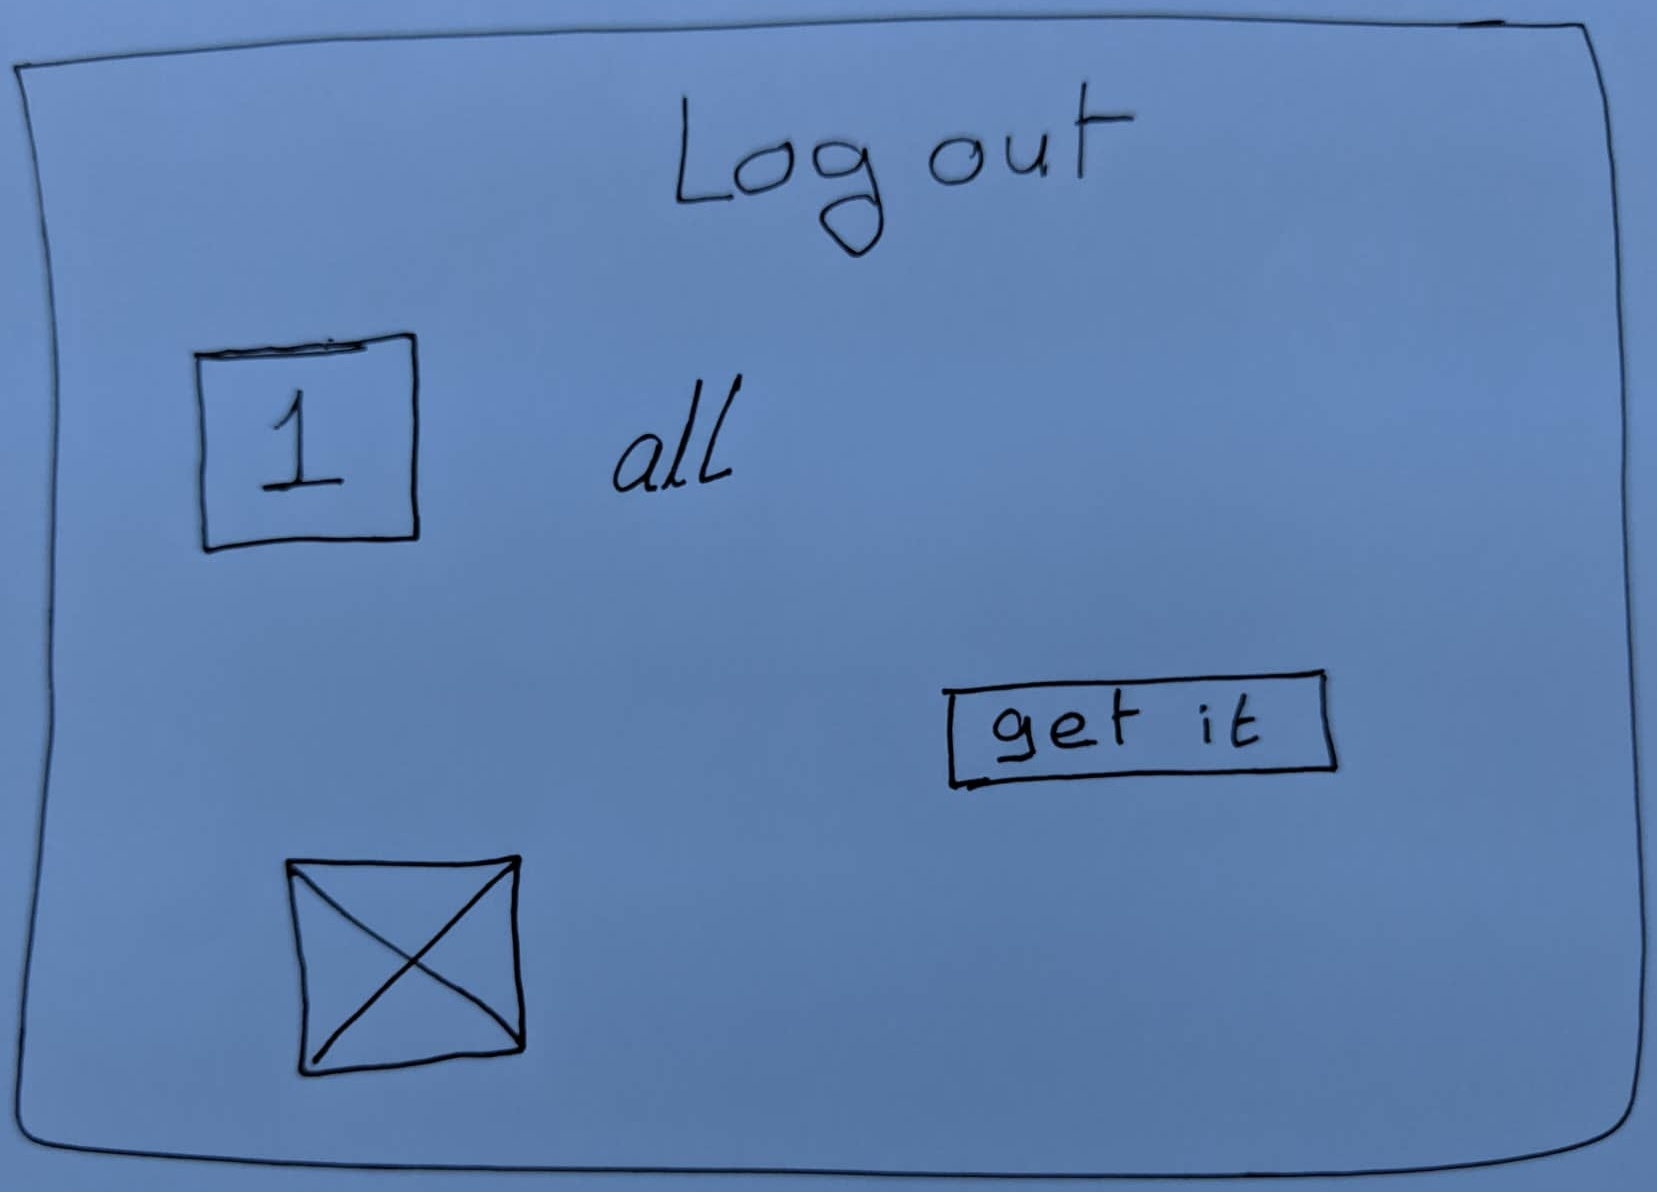 Log out
1 all
get it